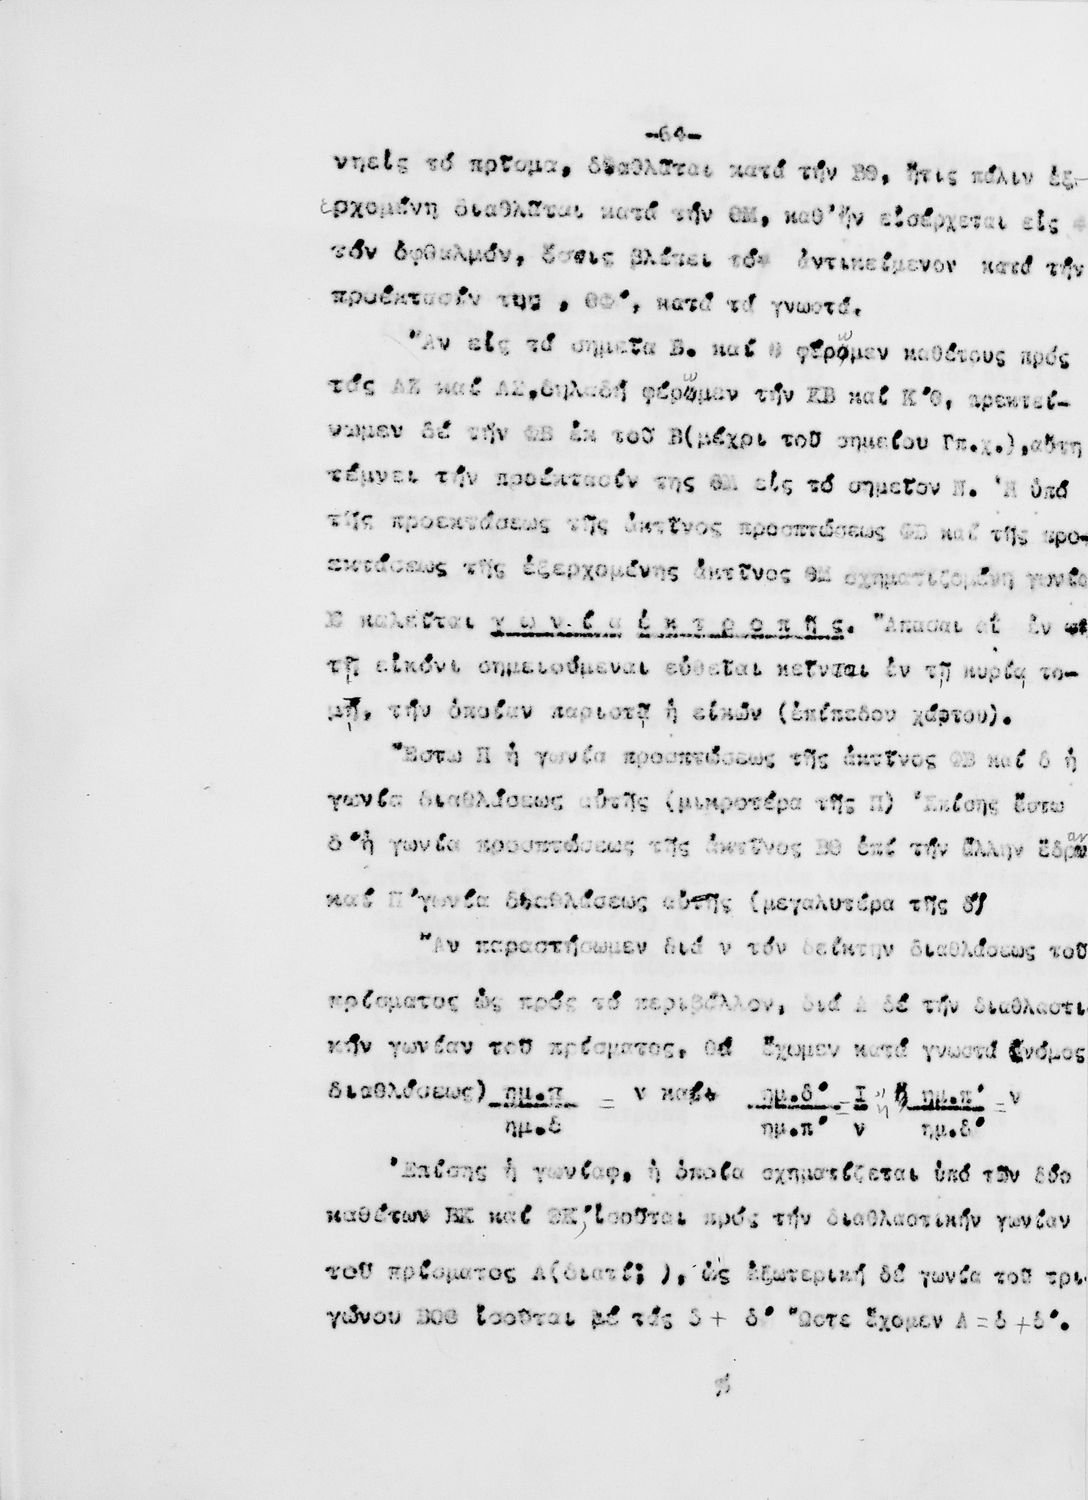 -64-
νηείς τό πρῖσμα, διαθλᾶται κατά τήν ΒΘ, ἥτις πάλιν ἐξ-
ερχομένη διαθλᾶται κατά τήν ΘΜ, καθ'ἥν εἰσέρχεται εἰς
τόν ὀφθαλμόν, ὅστις βλέπει τό ἀντικείμενον κατά τήν
προέκτασίν της , ΘΦ', κατά τά γνωστά.
Ἄν εἰς τά σημεῖα Β. καί Θ φέρωμεν καθέτους πρός
τάς ΑΣ καί ΑΣ,δηλαδή φέρωμεν τήν ΚΒ καί Κ'Θ, προεκτεί-
νωμεν δέ τήν ΦΒ ἐκ τοῦ Β(μέχρι τοῦ σημείου Γπ.χ.),αὕτη
τέμνει τήν προέκτασίν της ΘΜ εἰς τό σημεῖον Ν. Ἡ ὑπό
τῆς προεκτάσεως τῆς ἀκτῖνος προσπτώσεως ΦΒ καί τῆς προ-
εκτάσεως τῆς ἐξερχομένης ἀκτῖνος ΘΜ σχηματιζομένη γωνία
Ε καλεῖται γ ω ν ί α ἐ κ τ ρ ο π ῆ ς. Ἅπασαι αἱ ἐν
τῇ εἰκόνι σημειούμεναι εὐθεῖαι κεῖνται ἐν τῇ κυρίᾳ το-
μῇ, τήν ὁποίαν παριστᾷ ἡ εἰκών (ἐπίπεδον χάρτου).
Ἔστω Π ἡ γωνία προσπτώσεως τῆς ἀκτῖνος ΦΒ καί δ ἡ
γωνία διαθλάσεως αὐτῆς (μικροτέρα τῆς Π) Ἐπίσης ἔστω
δ'ἡ γωνία προσπτώσεως τῆς ἀκτῖνος ΒΘ ἐπί τήν ἄλλην ἕδραν
καί Π'γωνία διαθλάσεως αὐτῆς (μεγαλυτέρα τῆς δ')
Ἄν παραστήσωμεν διά ν τόν δείκτην διαθλάσεως τοῦ
πρίσματος ὡς πρός τό περιβάλλον, διά Α δέ τήν διαθλαστι
κήν γωνίαν τοῦ πρίσματος, θά ἔχωμεν κατά γνωστά (νόμος
διαθλάσεως) ημ.π = ν καί ημ.δ' = Ι ἤ ημ.π' = ν
ημ.δ ημ.π' ν ημ.δ'
Ἐπίσης ἡ γωνίαφ, ἡ ὁποία σχηματίζεται ὑπό τῶν δύο
καθέτων ΒΚ καί ΘΚ,'ἰσοῦται πρός τήν διαθλαστικήν γωνίαν
τοῦ πρίσματος Α(διατί; ), ὡς ἐξωτερική δέ γωνία τοῦ τρι
γώνου ΒΟΘ ἰσοῦται μέ τάς δ + δ' Ὥστε ἔχομεν Α = δ + δ'.